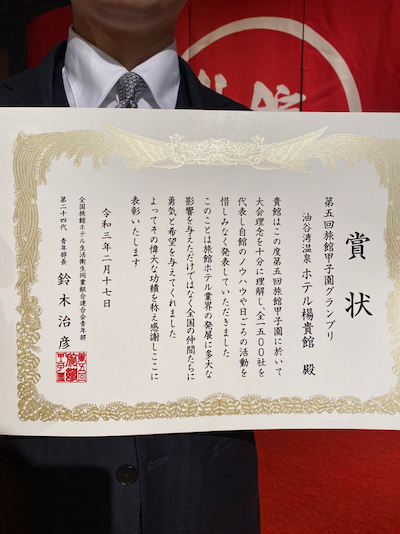 賞状
第五回旅館甲子園グランプリ
油谷湾温泉 ホテル楊貴館 殿
貴館はこの度第五回旅館甲子園に於いて
大会理念を十分に理解し、全一五〇〇社を
代表し自館のノウハウや日ごろの活動を
惜しみなく発表していただきました
このことは旅館ホテル業界の発展に多大な
影響を与えただけではなく全国の仲間たちに
勇気と希望を与えてくれました
よってその偉大な功績を称え感謝しここに
表彰いたします
令和三年二月十七日
全国旅館ホテル生活衛生同業組合連合会青年部
第二十四代 青年部長 鈴木治彦